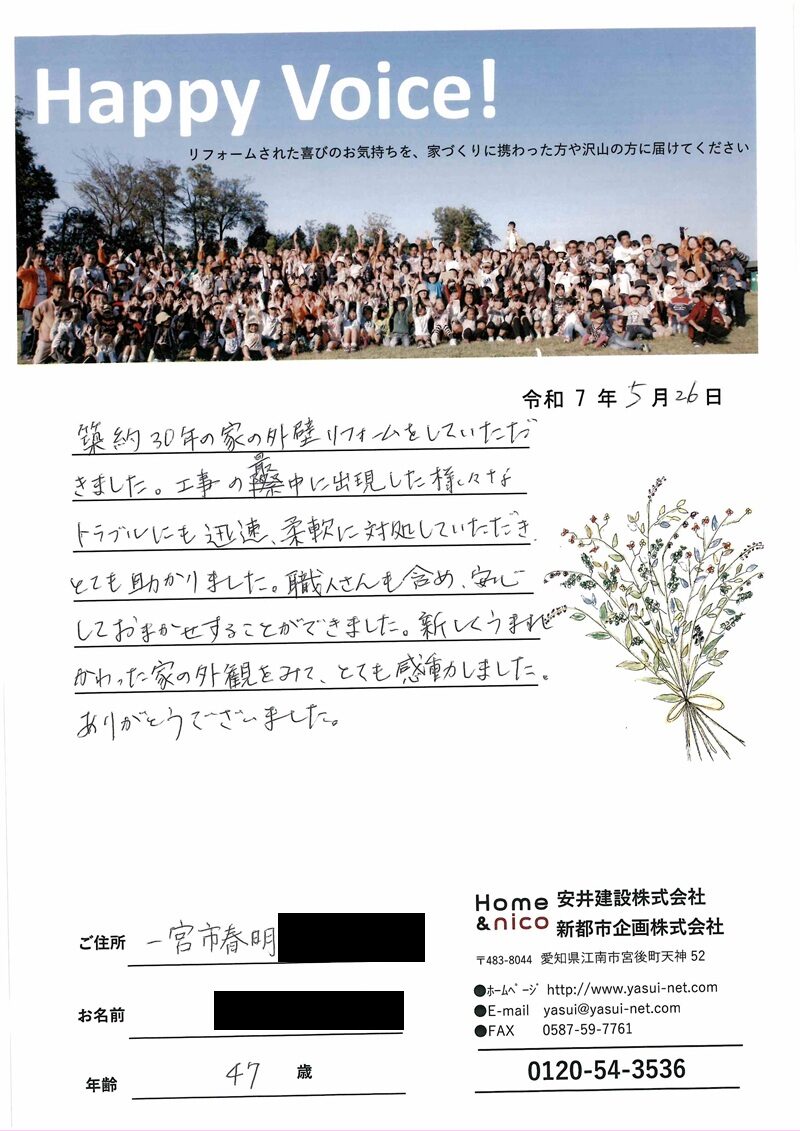 Happy Voice!
リフォームされた喜びのお気持ちを、家づくりに携わった方や沢山の方に届けてください
令和 7 年 5 月 26 日
築約30年の家の外壁リフォームをしていただ
きました。工事の最中に出現した様々な
トラブルにも迅速、柔軟に対処していただき、
とても助かりました。職人さんも含め、安心
しておまかせすることができました。新しくうまれ
かわった家の外観をみて、とても感動しました。
ありがとうございました。
ご住所 一宮市春明
お名前
年齢 47 歳
Home &nico
安井建設株式会社
新都市企画株式会社
〒483-8044 愛知県江南市宮後町天神 52
●ホームページ http://www.yasui-net.com
●E-mail yasui@yasui-net.com
●FAX 0587-59-7761
0120-54-3536